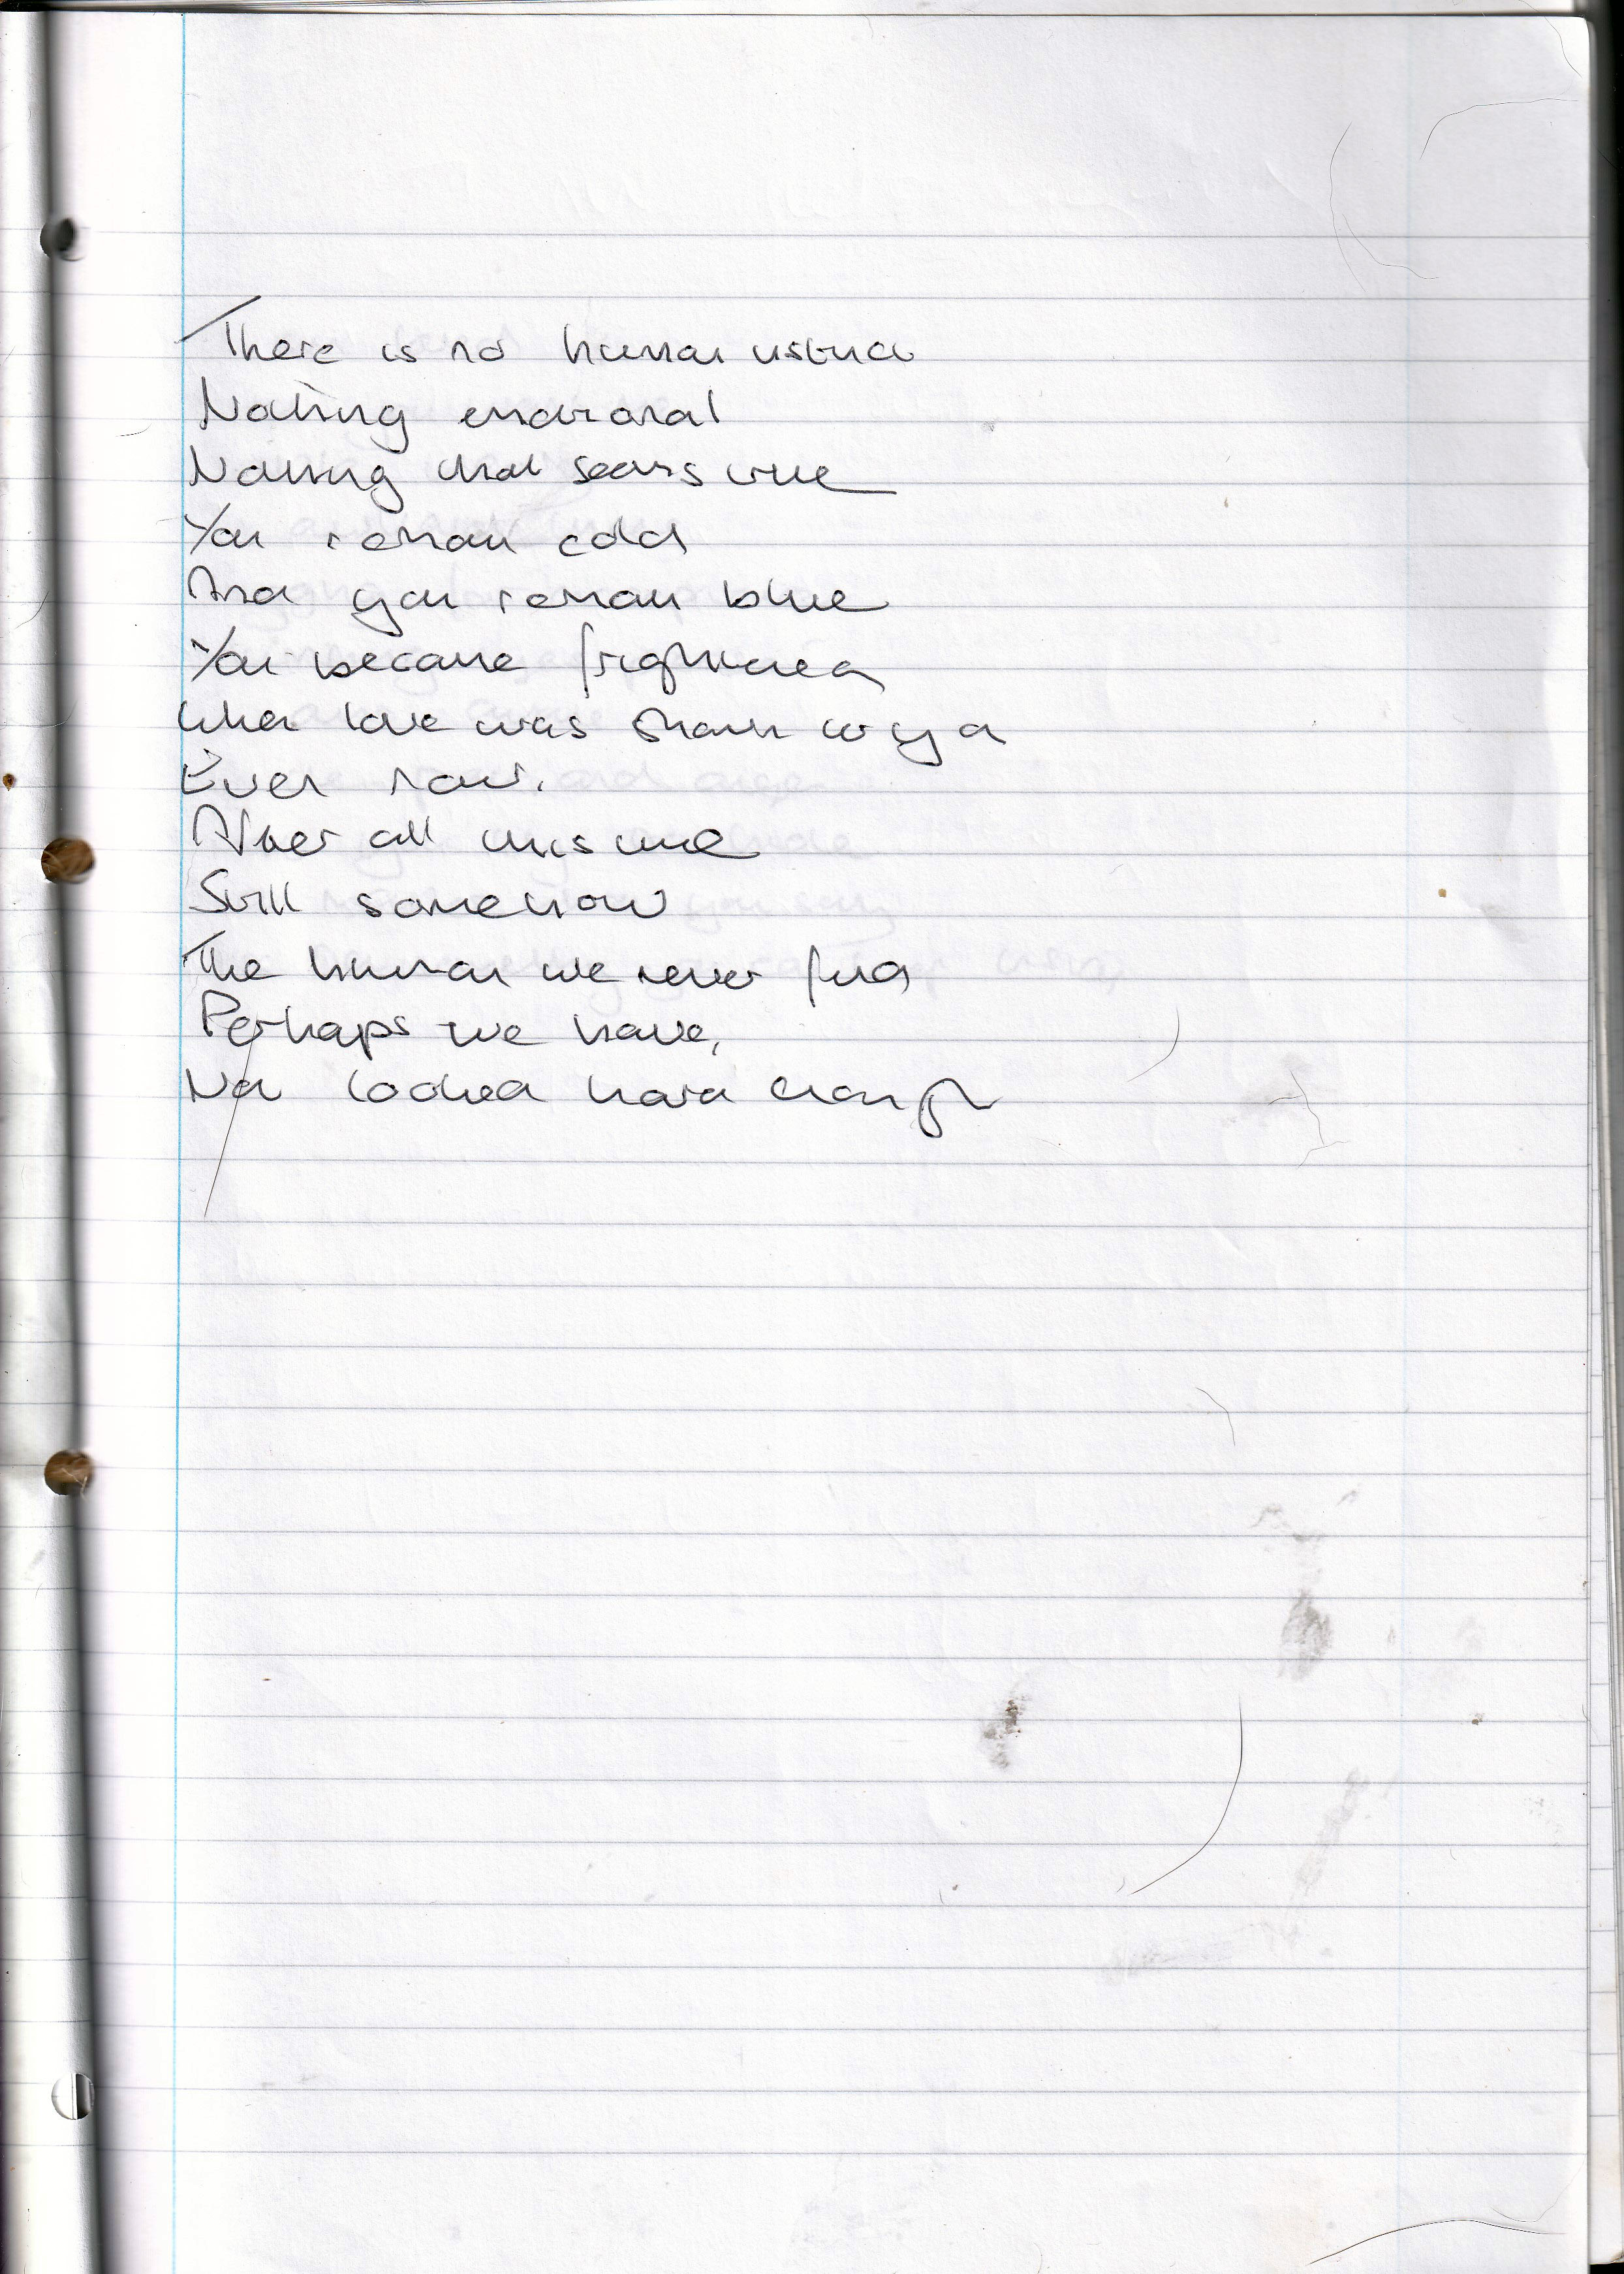 There is no human instinct
Nothing emotional
Nothing that seems true
You remain cold
And you remain blue
You became frightened
When love was shown to you
Even now,
After all this time
Still somehow
The human we never find
Perhaps we have,
Not looked hard enough